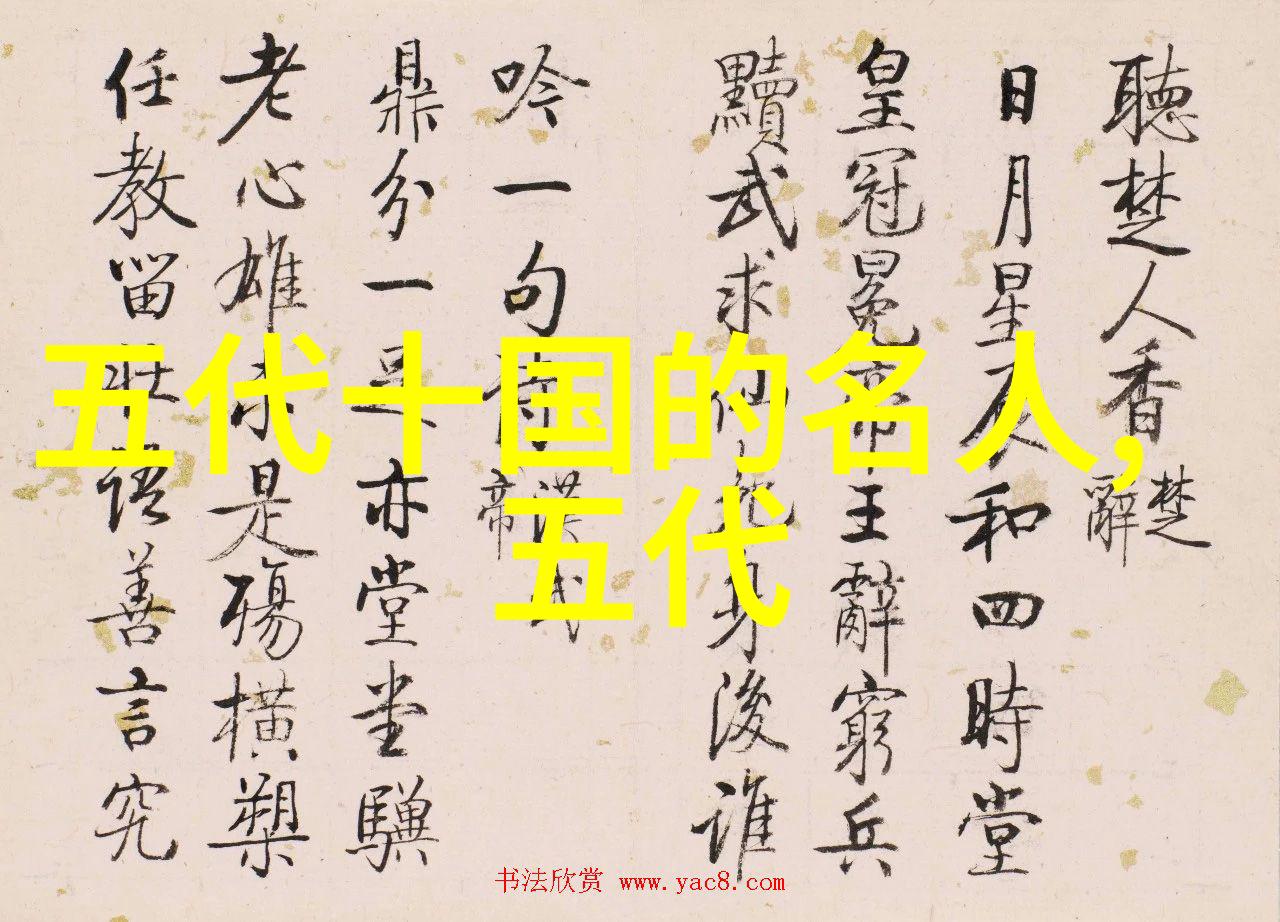 聽楚人香
楚辭
日月星辰和四時堂
皇冠冕亦帝王辭窮兵
黷武求仙身後誰
吟一句詩
漢武帝
鼎分一足亦堂堂驥
老心雄未是殤橫槊
任教留壯語善言究
五代十国的名人,
五代
书法欣赏 www.yac8.com